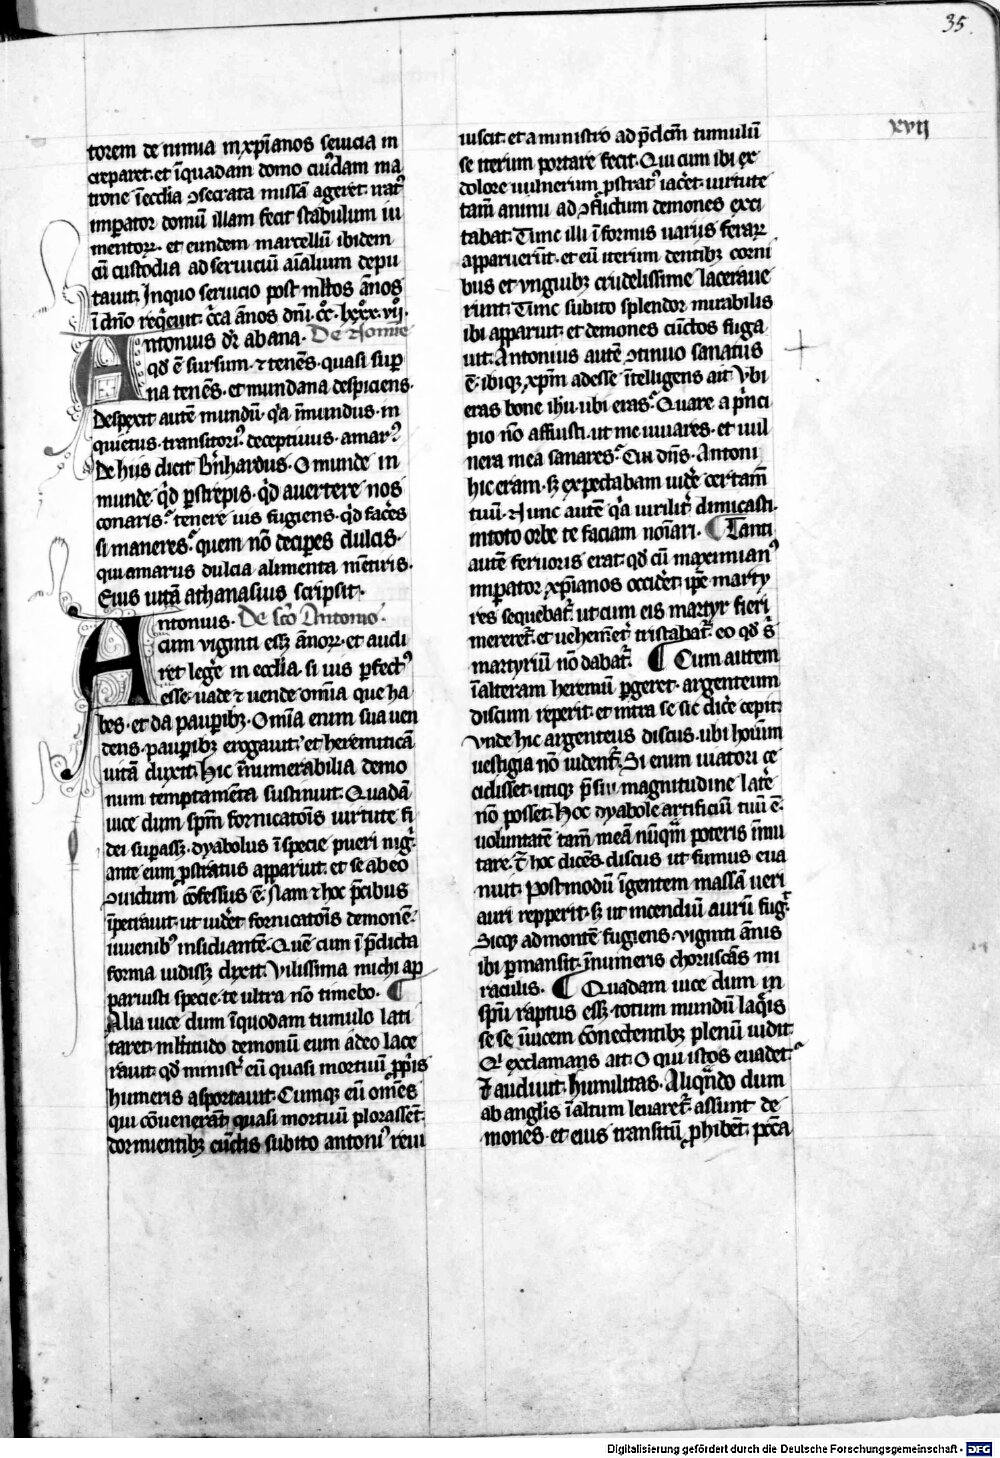 35
xvij
torem de nimia in xp̄ianos seuicia in
creparet· et īquadam domo cuꝰdam ma
trone ī eccl̄ia ꝯsecrata missā ageret· irat'
imꝑator domū illam fecit stabulum iu
mentoꝝ· et eundem marcellū ibidem
cū custodia ad seruiciū aīalium depu
tauit· In quo seruicio post ml̄tos ānos
ī dn̄o req̇euit· c̄ca ānos dn̄i· cc̊· lxxx· vij̊·
Antonius dr̄ ab ana· De Nomine
qd̄ ē sursum· ⁊ tenēs· quasi suꝑ
na tenēs· et mundana despiciens·
Despexit autē mundū· q̇a īmundus· in
quietus· transitori'· deceptiuus· amar'·
De hiis dicit Bn̄hardus· O munde in
munde· qd̄ ꝑstrepis· qd̄ auertere nos
conaris· tenere uis fugiens· qd̄ faceȓs
si maneres· quem nō deciꝑes dulcis·
qui amarus dulcia alimenta mētiris·
Eius uitā athanasius scripsit·
Antonius· De sc̄o Antonio·
cum viginti ess; ānoꝝ· et audi
ret legeȓ in eccl̄ia· si uis ꝑfect'
esse· uade ⁊ uende om̄ia que ha
bes· et da pauꝑibꝫ· Om̄ia enim sua uen
dens· pauꝑibꝫ erogauit· et heremiticā
uitā duxit· Hic īnumerabilia demo
num temptamēta sustinuit· Quadā
uice dum spm̄ fornicatōis uirtute fi
dei suꝑass;· dyabolus ī specie pueri nigȓ
ante eum ꝓstratus apparuit· et se ab eo
ꝯuictum cōfessus ē· Nam ⁊ hoc p̄cibus
īpetrauit· ut uideȓt fornicatōis demonē·
iuuenib' insidiantē· Quē cum ī p̄dicta
forma uidiss; dixit· Vilissima michi ap
paruisti specie· te ultra nō timebo· ¶
Alia uice dum īquodam tumulo lati
taret· ml̄titudo demonū eum adeo lace
rauit· qd̄ minist̄ eū quasi mortuū ꝓp̄iis
humeris asportauit· Cumqꝫ eū om̄ēs
qui cōuenerāt quasi mortuū plorassēt·
dormientibꝫ cūctis subito antoni' reui
uiscit· et a ministro ad p̄dc̄m tumulū
se iterum portare fecit· Qui cum ibi ex
dolore uulnerum ꝓstrat' iaceȓt· uirtute
tam̄ animi ad ꝯflictum demones exci
tabat· Tunc illi ī formis uariis feraꝝ
apparuerūt· et eū iterum dentibꝫ corni
bus et vnguibꝫ crudelissime lacera ue
runt· Tunc subito splendor mirabilis
ibi apparuit· et demones cūctos fuga
uit· Antonius autē ꝯtinuo sanatus
ē· ibiqꝫ xp̄m adesse ītelligens ait· Vbi
eras bone ih̄u· ubi eras· Quare a p̄nci
pio nō affuisti· ut me iuuares· et uul
nera mea sanares· Cui dn̄s· Antoni
hic eram· sꝫ expectabam uideȓ certam̄
tuū· Nunc autē q̇a uirilit' dimicasti·
in toto orbe te faciam noīari· ¶ Tanti
autē feruoris erat· qd̄ cū maximian'
imꝑator xp̄ianos occideȓt· ip̄e marty
res sequebat'· ut cum eis martyr fieri
mereret'· et uehemēt' tristabat'· eo qd̄ s'
martyriū nō dabat'· ¶ Cum autem
ī alteram heremū ꝑgeret· argenteum
discum reperit· et intra se sic diceȓ cepit·
Vnde hic argenteus discus· ubi hoīum
uestigia nō uident'· Si enim uiatori ce
cidisset· utiqꝫ p̄ sui magnitudine lateȓ
nō posset· Hoc dyabole artificiū tuū ē·
uoluntatē tam̄ meā nūqm̄ poteris īmu
tare· Et hoc dicēs· discus ut fumus eua
nuit· Postmodū īgentem massā ueri
auri repperit· sꝫ ut incendiū aurū fug'·
Sicqꝫ ad montē fugiens· viginti ānis
ibi ꝑmansit· īnumeris choruscās mi
raculis· ¶ Quadam uice dum in
spū raptus ess;· totum mundū laq̇is
se se īuicem cōnectentibꝫ plenū uidit·
Qi exclamans ait· O quis istos euadet·
Et audiuit· humilitas· Aliqn̄do dum
ab angl̄is ī altum leuaret'· assunt de
mones· et eius transitū ꝓhibēt· pcc̄a